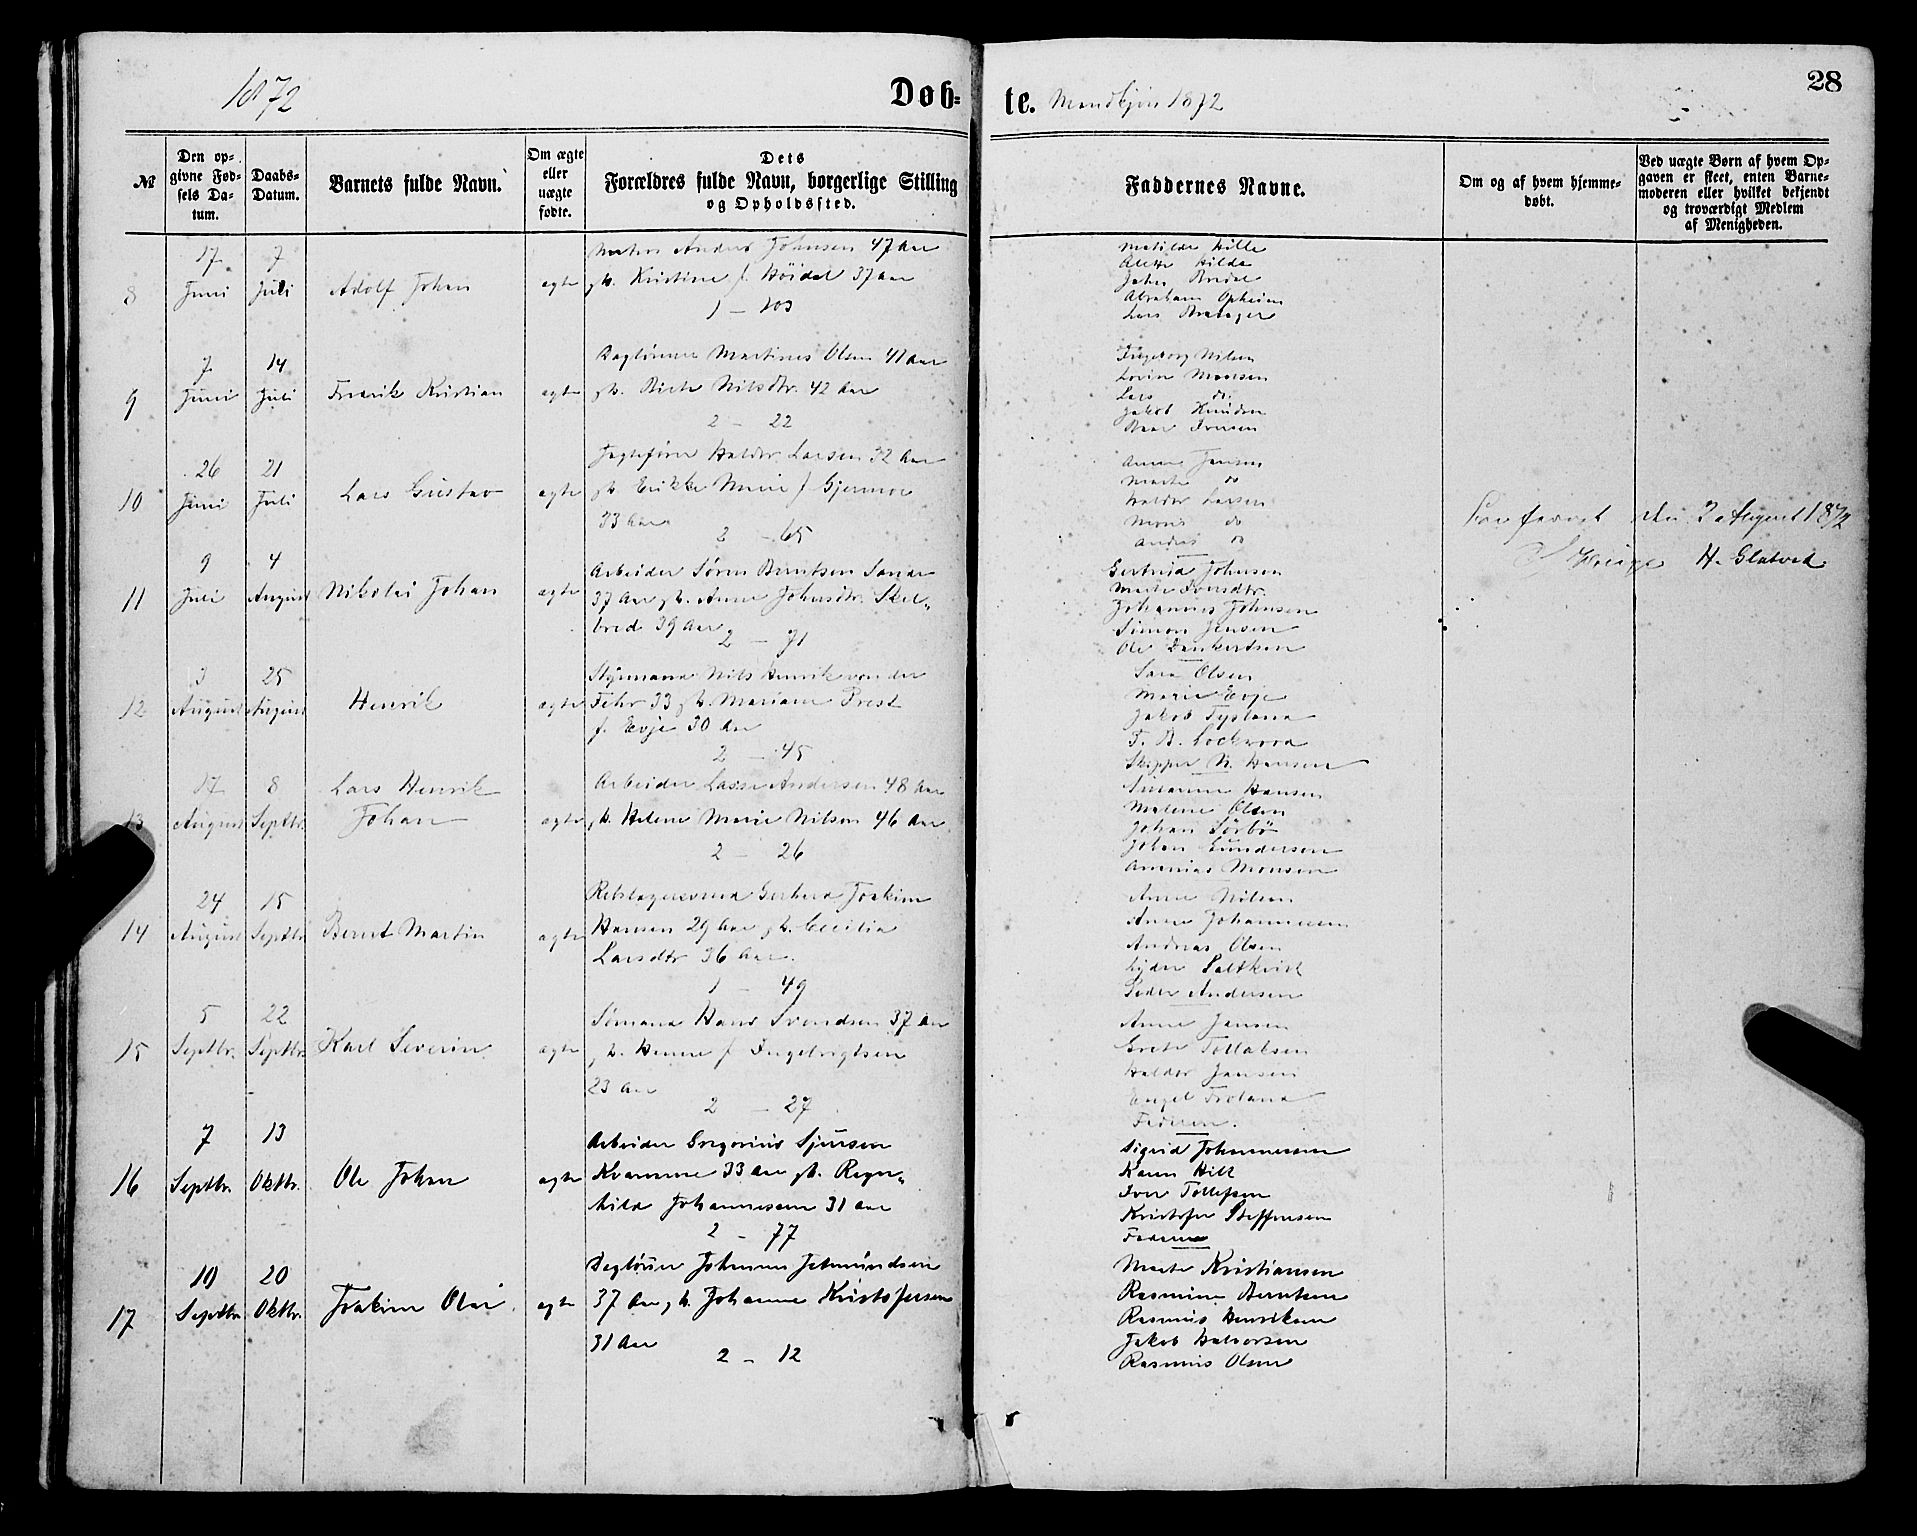 1872
Døb-
te. Mandkjøn 1872
28
№
Den op-
givne Fød-
sels Da-
tum.
Daabs-
Datum.
Barnets fulde Navn.
Om ægte
eller
uægte
fødte.
Dets
Forældres fulde Navn, borgerlige Stilling
og Opholdssted.
Faddernes Navne.
Om og af hvem hjemme-
døbt.
Ved uægte Børn af hvem Op-
gaven er skeet, enten Barne-
moderen eller hvilket bekjendt
og troværdigt Medlem
af Menigheden.
8
17
Juni
7
Juli
Adolf Johan
ægte
Anders Johnsen 47 Aar
Kristine f. Høidal 37 Aar
1 - 103
Matilde Hille
Hilde
Abraham Opheim
Lars
9
7
Juni
14
Juli
Fredrik Kristian
ægte
Dagløner Martinus Olsen 41 Aar
Nilsdtr. 42 Aar
2 - 22
Ingeborg Nilsen
Monsen
Lars do.
Jakob Knudsen
Iversen
10
26
Juni
21
Juli
Lars Gustav
ægte
Jagtefører Haldor Larsen 32 Aar
Marie f Gjermoe
33 Aar
2 - 65
Anna Jansen
Marte do
Haldor Larsen
Mons do
Andreas do
den 2 August 1872
H. Glatved
11
9
Juli
4
August
Nikolai Johan
ægte
Arbeider Søren Berntsen Sande
37 Aar Anne Johnsdtr. Skel-
bred 39 Aar
2 - 71
Gertrud Johnsen
Marte Iversdtr.
Johannes Johnsen
Simon Jensen
Ole Dankertsen
12
3
August
25
August
Henrik
ægte
Styrmand Nils Henrik von der
Fehr 33 Mariane Prest
f. Evje 30 Aar
2 - 45
Sara Olsen
Marie Evje
Jakob Tysland
T. B. Lockwood
Skipper N. Hansen
13
17
August
8
Septbr.
Lars Henrik
Johan
ægte
Arbeider Lasse Andersen 48 Aar
Helene Marie Nilsen 46 Aar
2 - 26
Susanne Hansen
Malene Olsen
Johan Sørbø
Johan Gundersen
Ananias Monsen
14
24
August
15
Septbr.
Bernt Martin
ægte
Rebslagersvend Gerhard Joakim
Hansen 29 Aar Cecilia
Larsdtr 36 Aar
1 - 49
Anne Nilsen
Anne Johannesen
Andreas Olsen
Lyder Saltkvist
Peder Andersen
15
5
Septbr.
22
Septbr.
Karl Severin
ægte
Sømand Hans Svendsen 37 Aar
Hanne f Ingebrigtsen
23 Aar
2 - 27
Anne Jansen
Grete Tollaksen
Haldor Jansen
Engel Froland
Faderen.
16
7
Septbr.
13
Oktbr.
Ole Johan
ægte
Arbeider Gregorius Sjursen
Kvamme 33 Aar Ragn-
hild Johannesen 31 Aar
2 - 77
Sigrid Johannessen
Karen Hille
Iver Tollefsen
Kristofer Steffensen
Faderen
17
10
Septbr
20
Oktbr.
Joakim Olai
ægte
Dagløner Johannes Jetmundsen
37 Aar Johanne Kristofersen
31 Aar
2 - 12
Marte Kristiansen
Rasmine Berntsen
Rasmus Henriksen
Jakob Halvorsen
Rasmus Olsen